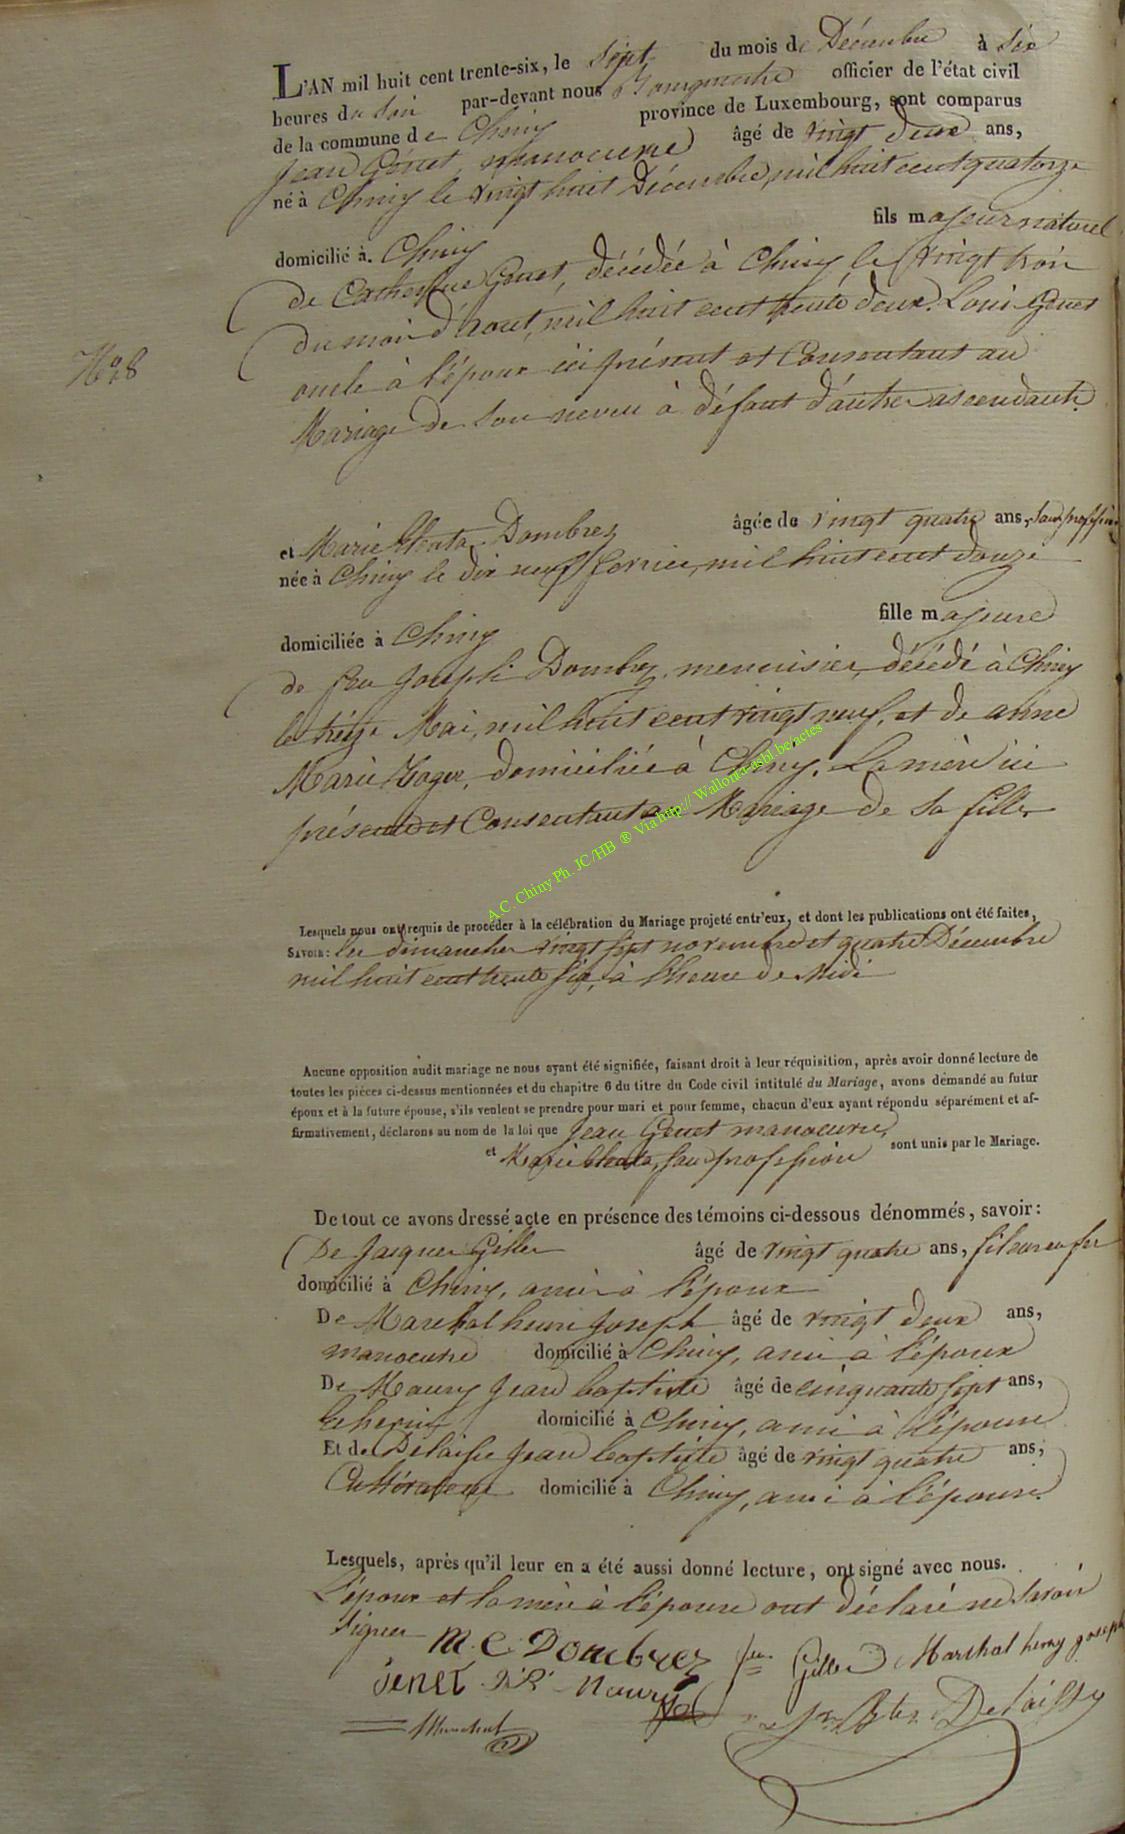 L'AN mil huit cent trente-six, le Sept du mois de Décembre à Six
heures du Soir par-devant nous Bourguemestre officier de l'état civil
de la commune de Chiny province de Luxembourg, sont comparus
Jean Genet, manoeuvre âgé de vingt deux ans,
né à Chiny le vingt huit Décembre, mil huit cent quatorze
fils majeur naturel
domicilié à. Chiny
de Catherine Genet, décédée à Chiny le vingt trois
du mois d'aout, mil huit cent trente deux. Louis Genet
oncle à l'époux ici présent et Consentant au
Mariage de Son neveu à défaut d'autres ascendants.
N° 8
et Marie Dombrez âgée de vingt quatre ans, Sans profession
née à Chiny le dix neuf fevrier, mil huit cent douze
fille majeure
domiciliée à Chiny
de feu Joseph Dombrez, menuisier, décédé à Chiny
le treize Mai, mil huit cent vingt neuf, et de anne
Marie, domiciliée à Chiny. La mère ici
présente et Consentant au Mariage de Sa fille.
A.C. Chiny Ph. JC/HB ® Via http:// Wallonia-asbl.be/actes
Lesquels nous ont requis de procéder à la célébration du Mariage projeté entr'eux, et dont les publications ont été faites,
SAVOIR: les dimanches vingt Sept novembre et quatre Décembre
mil huit cent trente Six, à l'heure de Midi
Aucune opposition audit mariage ne nous ayant été signifiée, faisant droit à leur réquisition, après avoir donné lecture de
toutes les pièces ci-dessus mentionnées et du chapitre 6 du titre du Code civil intitulé du Mariage, avons demandé au futur
époux et à la future épouse, s'ils veulent se prendre pour mari et pour femme, chacun d'eux ayant répondu séparément et af-
firmativement, déclarons au nom de la loi que Jean Genet manoeuvre,
et Marie, Sans profession sont unis par le Mariage.
De tout ce avons dressé acte en présence des témoins ci-dessous dénommés, savoir:
De Jacques Gilles âgé de vingt quatre ans, fileur en fer
domicilié à Chiny, ami à l'époux
De Marchal henri Joseph âgé de vingt deux ans,
manoeuvre domicilié à Chiny, ami à l'époux
De Maury Jean baptiste âgé de cinquante Sept ans,
domicilié à Chiny, ami à l'épouse
Et de Delaisse Jean baptiste âgé de vingt quatre ans,
Cultivateur domicilié à Chiny, ami à l'épouse.
Lesquels, après qu'il leur en a été aussi donné lecture, ont signé avec nous.
L'époux et la mère à l'épouse ont déclaré ne Savoir
Signer M. C. Dombrez Gilles Marchal henry joseph
Jenet Maury
Marchal Delaisse